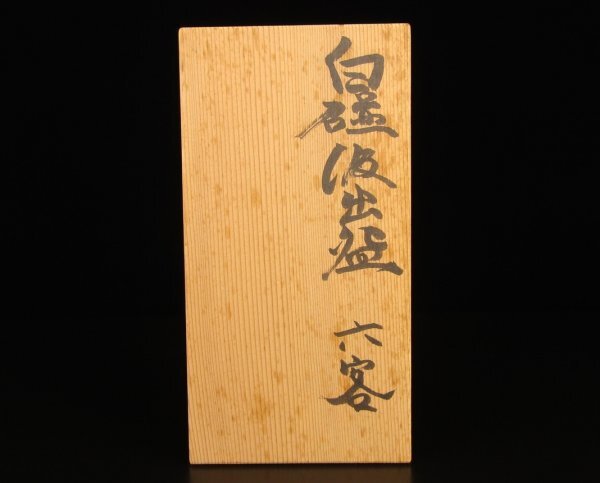 白磁汲出盌 六客